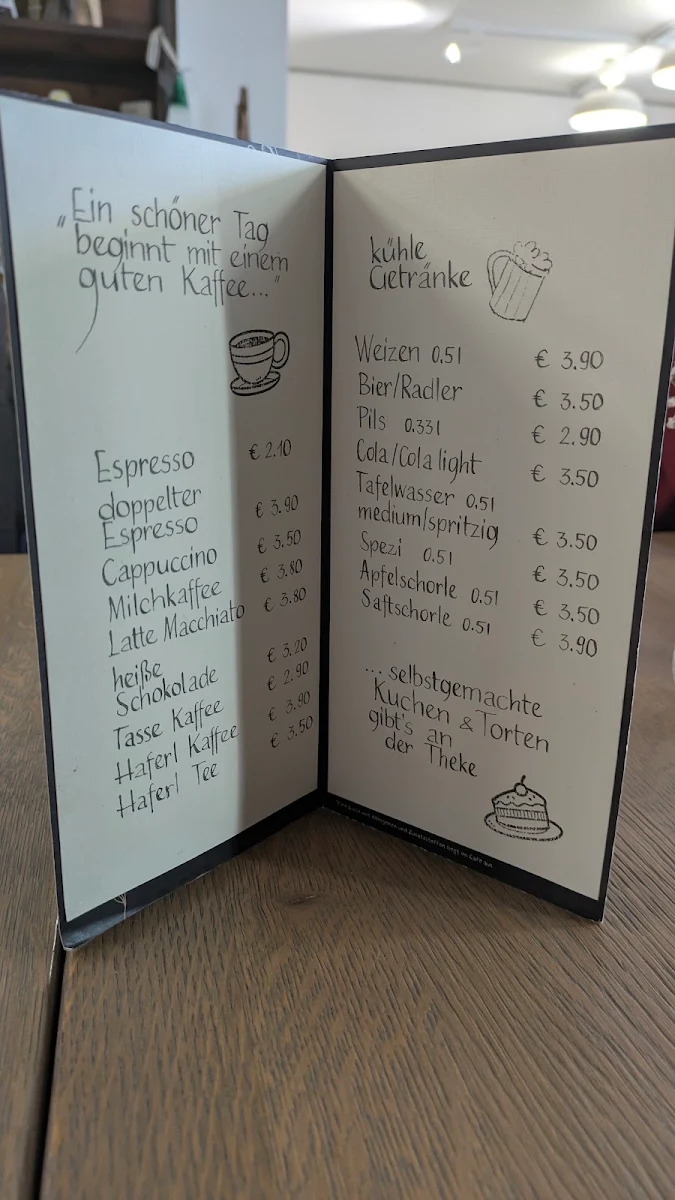 „Ein schöner Tag
beginnt mit einem
guten Kaffee..."
Espresso € 2.10
doppelter
Espresso € 3.90
Cappuccino € 3.50
Milchkaffee € 3.80
Latte Macchiato € 3.80
heiße
Schokolade € 3.20
Tasse Kaffee € 2.90
Haferl Kaffee € 3.90
Haferl Tee € 3.50
kühle
Getränke
Weizen 0.5l € 3.90
Bier/Radler € 3.50
Pils 0.33l € 2.90
Cola/Cola light € 3.50
Tafelwasser 0.5l
medium/spritzig € 3.50
Spezi 0.5l € 3.50
Apfelschorle 0.5l € 3.50
Saftschorle 0.5l € 3.90
...selbstgemachte
Kuchen & Torten
gibt's an
der Theke
von Allergenen und Zusatzstoffen liegt im Café aus